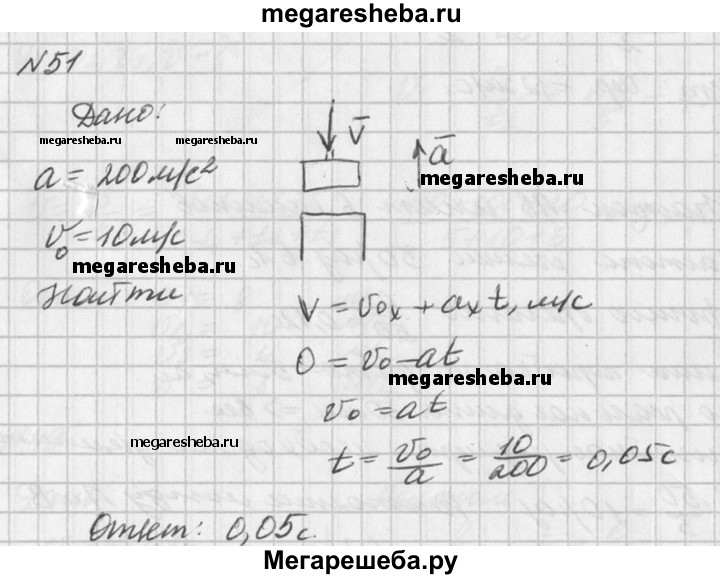 megaresheba.ru
N51
Дано:
megaresheba.ru megaresheba.ru
a = 200 м/с²
v₀ = 10 м/с
megaresheba.ru
Найти
V̅
a̅
megaresheba.ru
V = v₀ₓ + aₓt, м/с
0 = v₀ - at
megaresheba.ru
v₀ = at
megaresheba.ru
t = v₀/a = 10/200 = 0,05 с
Ответ: 0,05 с.
Мегарешеба.ру